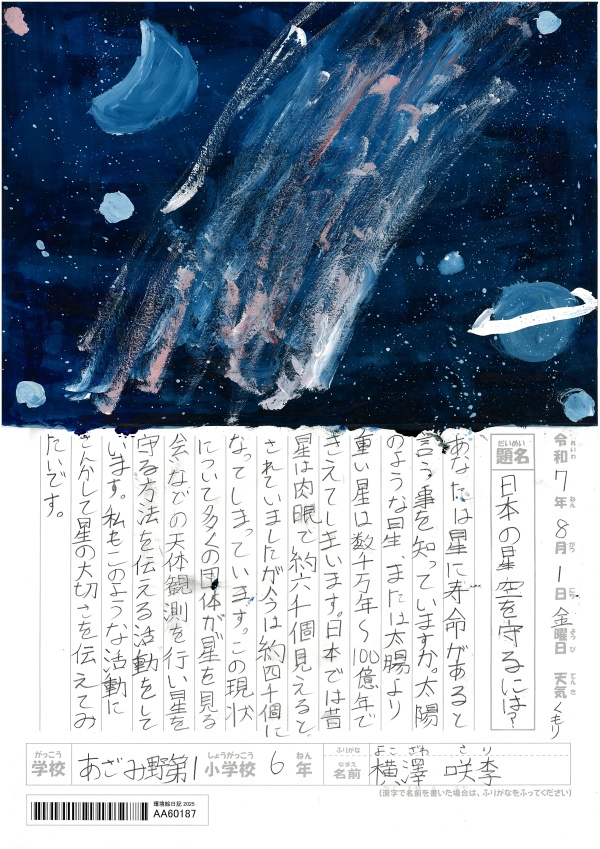 令和7年8月1日金曜日 天気 くもり
れいわ ねん がつ にち ようび てんき
だいめい
題名 日本の星空を守るには?
あなたは星に寿命があると
言う事を知っていますか。太陽
のような星、または太腸より
重い星は数千万年〜100億年で
きえてしまいます。日本では昔
星は肉眼で約六千個見えると
されていましたが今は約四千個に
なってしまっています。この現状
について多くの団体が星を見る
会などの天体観測を行い星を
守る方法を伝える活動をして
います。私もこのような活動に
さんかして星の大切さを伝えてみ
たいです。
がっこう しょうがっこう ねん
学校 あざみ野第1小学校 6年
ふりがな よこざわ さり
なまえ
名前 横澤 咲季
(漢字で名前を書いた場合は、ふりがなをふってください)
環境絵日記 2025
AA60187